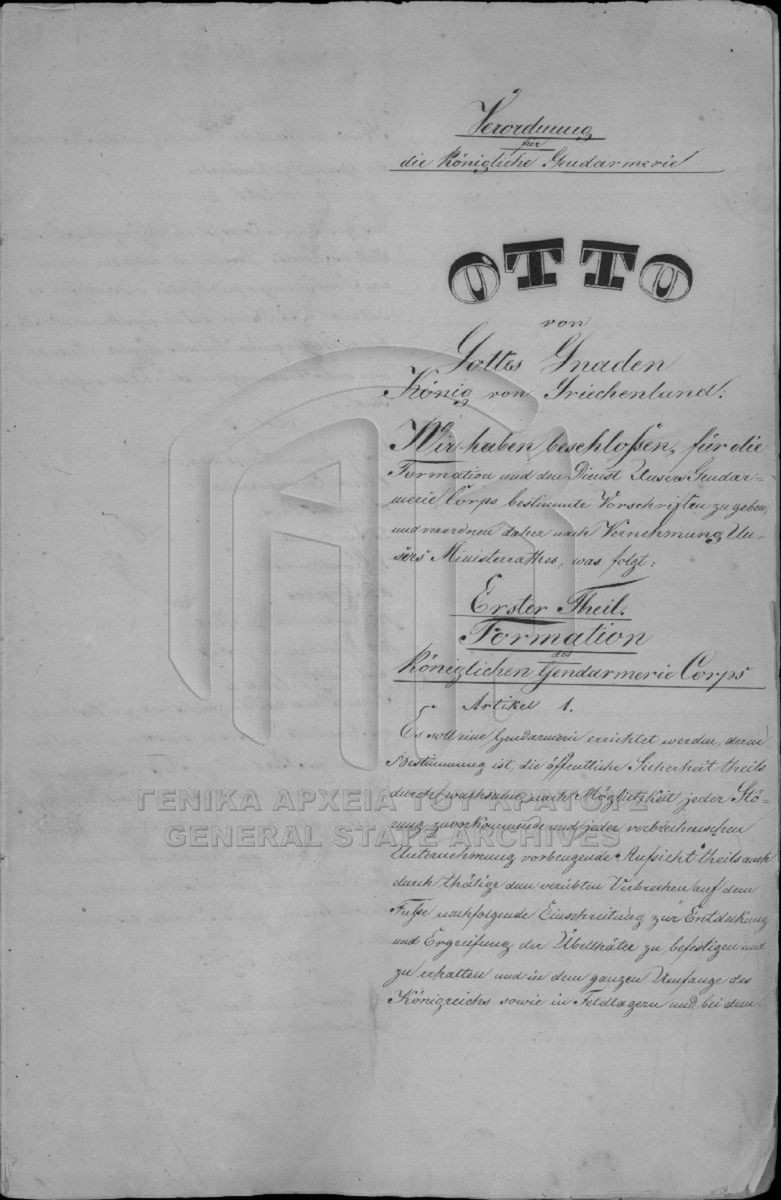 Verordnung
für
die Königliche Gendarmerie
OTTO
von
Gottes Gnaden
König von Griechenland.
Wir haben beschloßen, für die
Formation und den Dienst Unsers Gendar-
merie Corps bestimmte Vorschriften zu geben,
und verordnen daher nach Vernehmung Un-
sers Ministerrathes, was folgt:
Erster Theil.
Formation
des
Königlichen Gendarmerie Corps
Artikel 1.
Es soll eine Gendarmerie errichtet werden, deren
Bestimmung ist, die öffentliche Sicherheit theils
durch wachsame nach Möglichkeit jeder Stö-
rung zuvorkommende und jeder verbrecherischen
Unternehmung vorbeugende Aufsicht theils auch
durch thätige dem verübten Verbrechen auf dem
Fuße nachfolgende Einschreitung zur Entdeckung
und Ergreifung der Übelthäter zu befestigen und
zu erhalten und in dem ganzen Umfange des
Königreichs sowie in Feldlagern und bei dem
ΓΕΝΙΚΑ ΑΡΧΕΙΑ ΤΟΥ ΚΡΑΤΟΥΣ
GENERAL STATE ARCHIVES